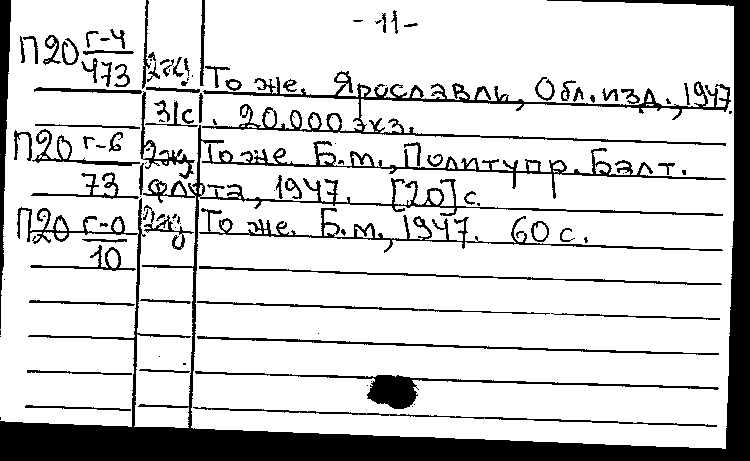 - 11 -
П20 г-4/473 2эк То же. Ярославль, Обл.изд., 1947.
31с. 20.000 экз.
П20 г-6/73 2эк То же. Б.м., Политупр. Балт.
флота, 1947. [20] с.
П20 г-0/10 2эк То же. Б.м., 1947. 60 с.